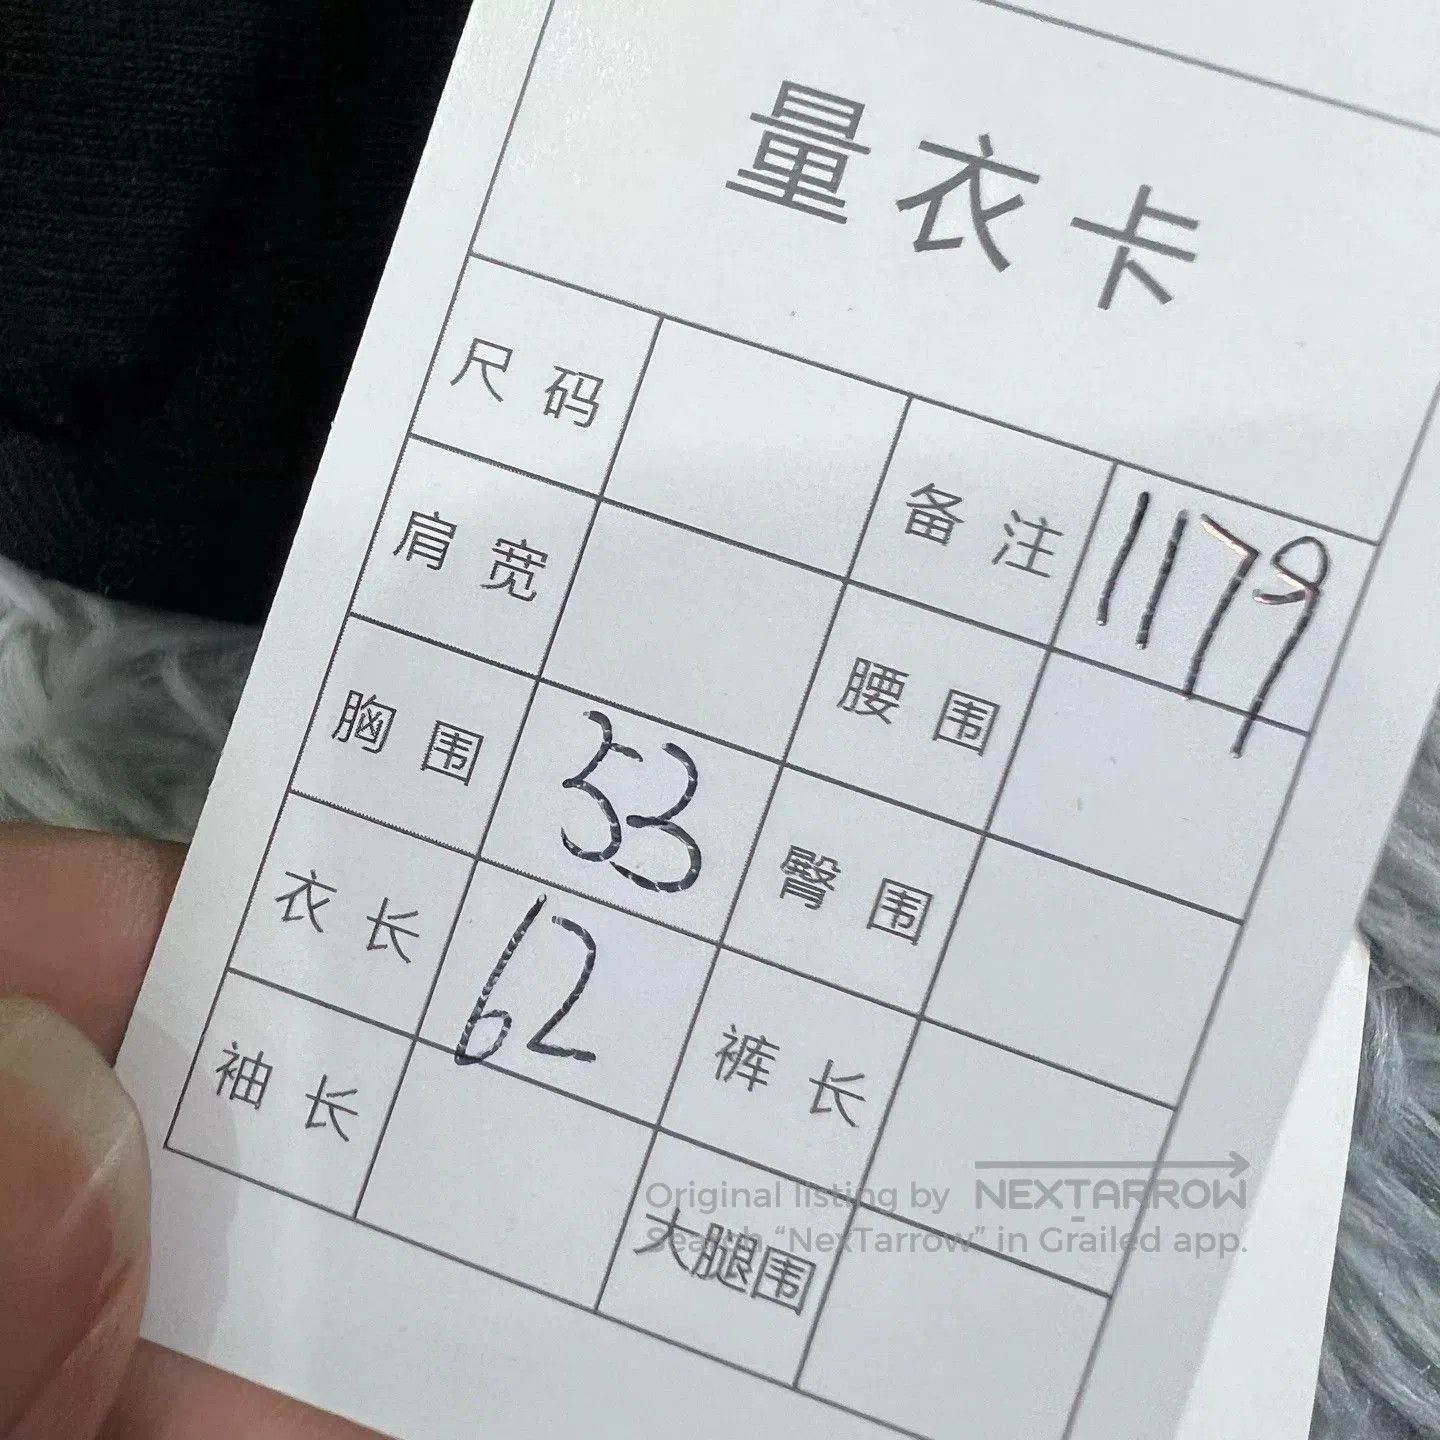 量衣卡
尺码
备注 1179
肩宽
腰围
胸围 53
臀围
衣长 62
裤长
袖长
大腿围
Original listing by NEXTARROW
Search "NexTarrow" in Grailed app.